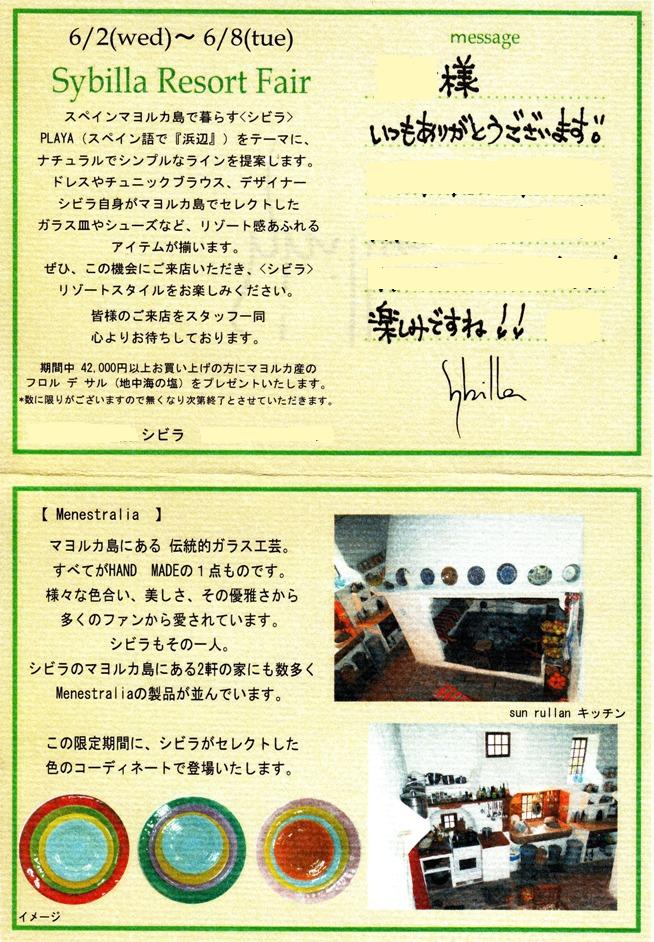 6/2(wed)〜 6/8(tue)
Sybilla Resort Fair
スペインマヨルカ島で暮らす<シビラ>
PLAYA(スペイン語で『浜辺』)をテーマに、
ナチュラルでシンプルなラインを提案します。
ドレスやチュニックブラウス、デザイナー
シビラ自身がマヨルカ島でセレクトした
ガラス皿やシューズなど、リゾート感あふれる
アイテムが揃います。
ぜひ、この機会にご来店いただき、<シビラ>
リゾートスタイルをお楽しみください。
皆様のご来店をスタッフ一同
心よりお待ちしております。
期間中 42,000円以上お買い上げの方にマヨルカ産の
フロル デ サル(地中海の塩)をプレゼントいたします。
*数に限りがございますので無くなり次第終了とさせていただきます。
シビラ
message
様
いつもありがとうございます。
楽しみですね!!
Sybilla
【 Menestralia 】
マヨルカ島にある 伝統的ガラス工芸。
すべてがHAND MADEの1点ものです。
様々な色合い、美しさ、その優雅さから
多くのファンから愛されています。
シビラもその一人。
シビラのマヨルカ島にある2軒の家にも数多く
Menestraliaの製品が並んでいます。
この限定期間に、シビラがセレクトした
色のコーディネートで登場いたします。
イメージ
sun rullan キッチン